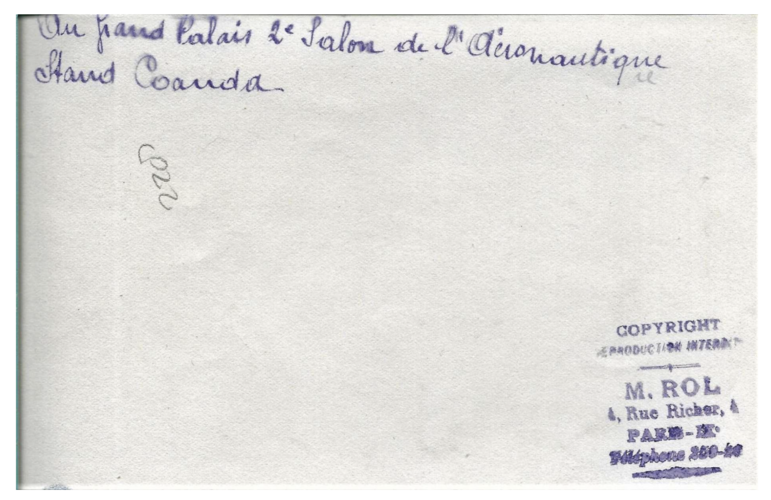 Au Grand Palais 2e Salon de l'Aéronautique
Stand Coanda
COPYRIGHT
REPRODUCTION INTERDITE
M. ROL
4, Rue Richer, 4
PARIS-IXe
Téléphone